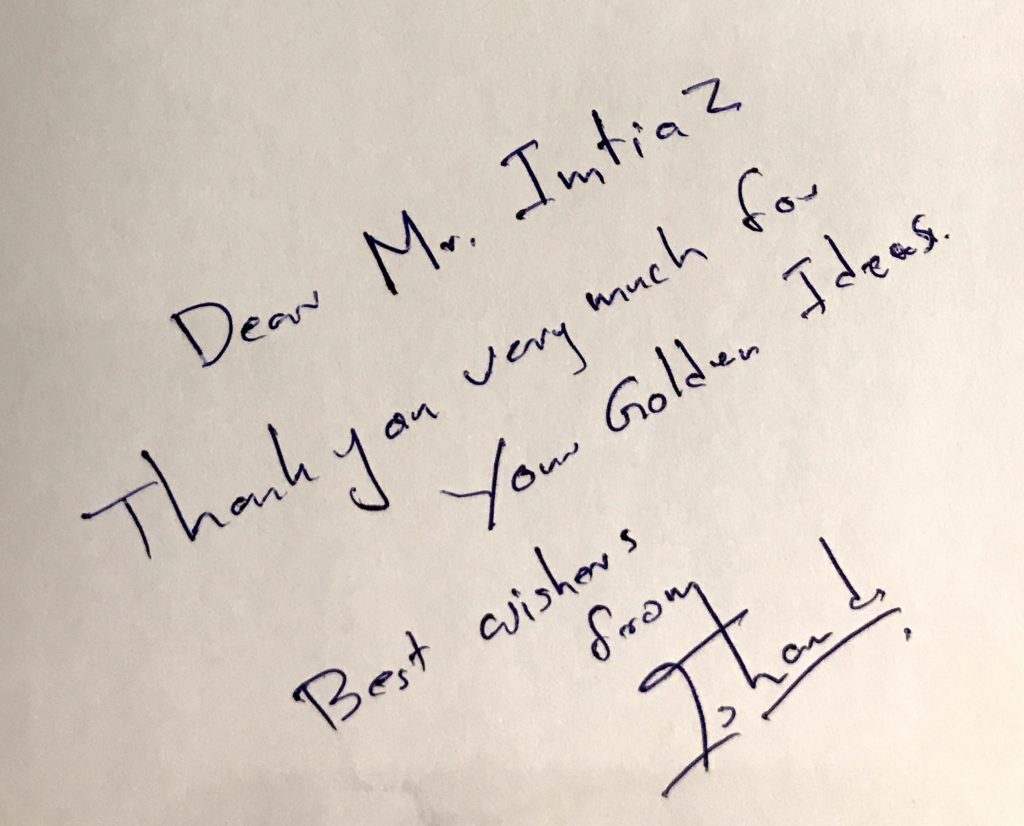 Dear Mr. Imtiaz
Thank you very much for
Your Golden Ideas.
Best wishers
from